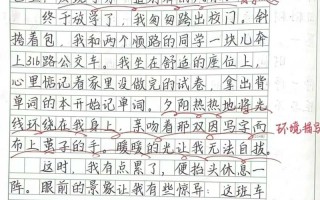 终于放学了，我匆匆踏出校门。斜
挎着包，我和两个顺路的同学一块儿奔
上316路公交车。我坐在舒适的座位上，
心里惦记着家里没做完的试卷，拿出背
单词的本开始记单词。夕阳热热地将光
线环绕在我身上，亲吻着那双因写字而
布上茧子的手。暖暖的光让我无法自拔。
环境描写
这时，我有点累了，便抬头休息一
阵。眼前的景象让我有些惊异：这班车